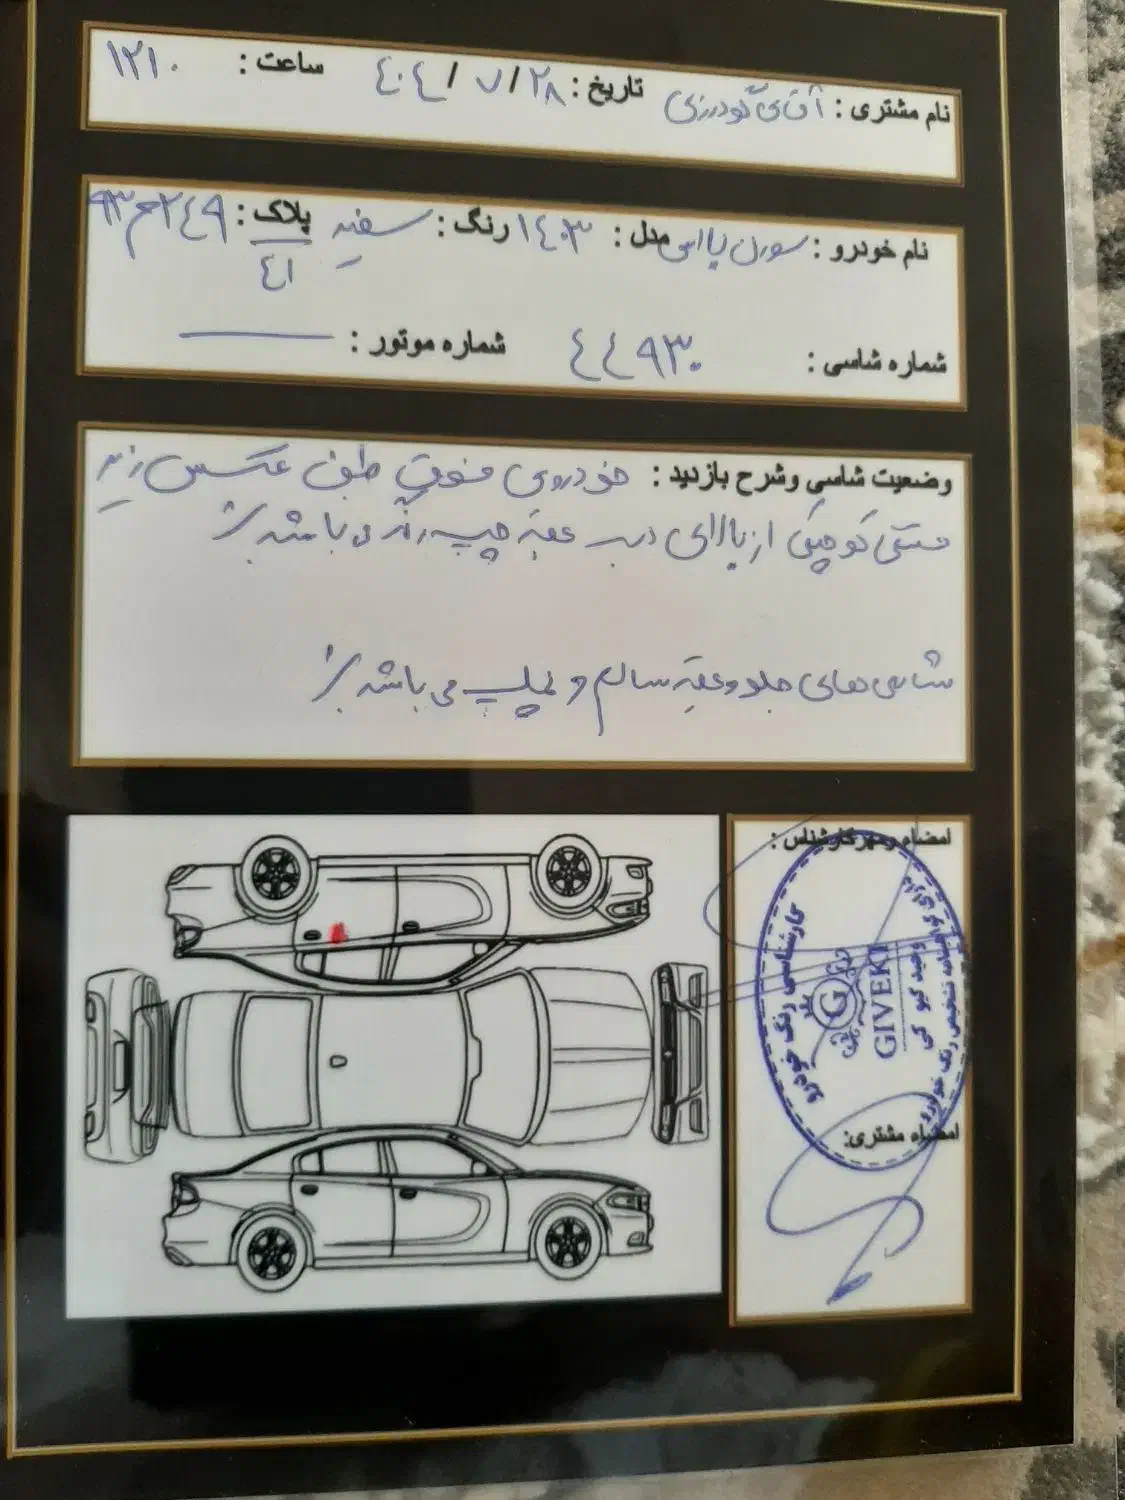 نام مشتری : آقای گودرزی تاریخ : ۲۸ / ۷ / ۴۰۴ ساعت : ۱۲۱۰
نام خودرو : سورن پلاس مدل : ۱۴۰۳ رنگ : سفید پلاک : ۲۴۹ م ۹۳
۴۱
شماره شاسی : ۴۴۹۳۰ شماره موتور :
وضعیت شاسی وشرح بازدید : خودروی فوق طبق عکس زیر
قسمتی کوچکی از بالای درب عقب چپ رنگ می باشد
شاسی های جلو و عقب سالم و پلمپ می باشد
امضاء ومهرکارشناس :
کارشناسی رنگ خودرو
G
GIVEKI
وحید گیو کی
دارای گواهینامه تشخیص رنگ خودرو
امضاء مشتری: